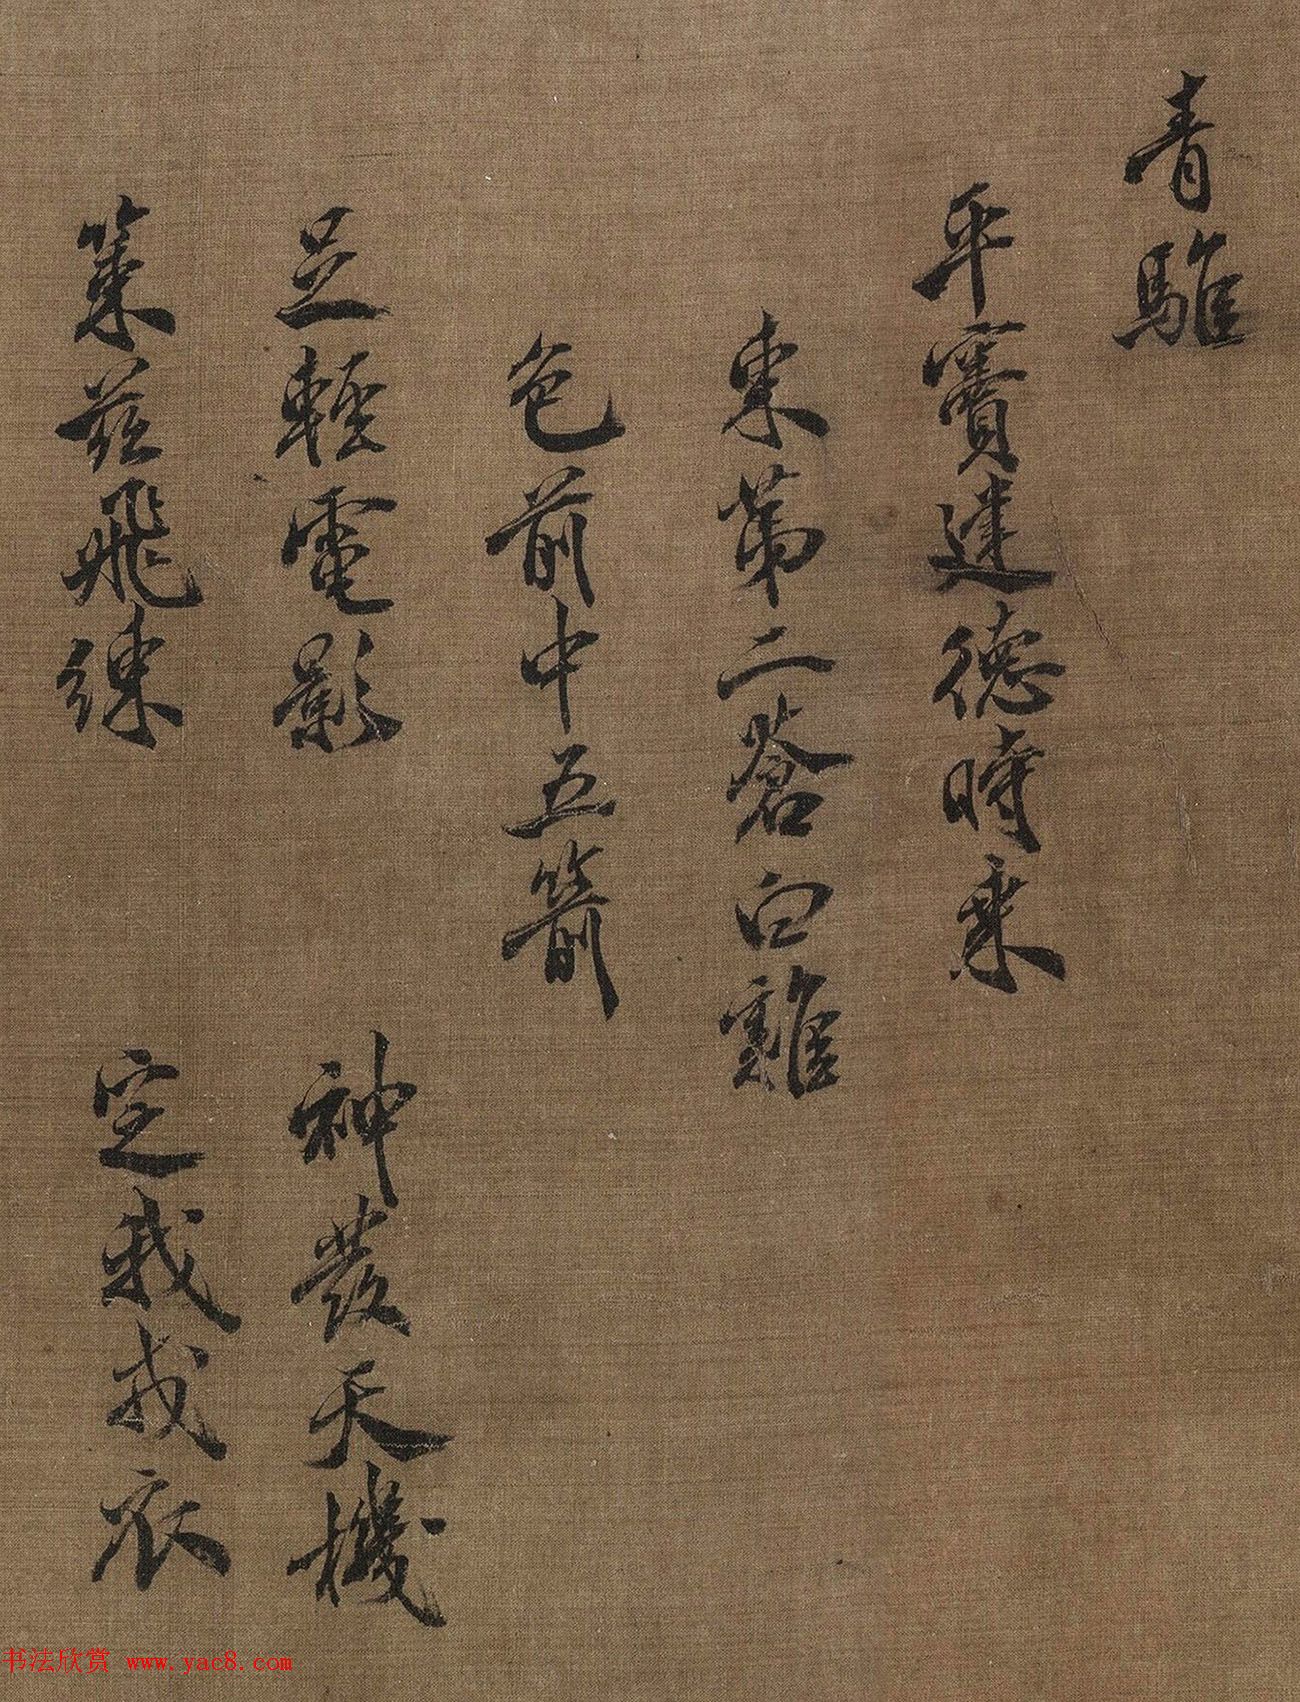 青騅
平竇建德時乘
東第二蒼白雜
色前中五箭
足輕電影 神發天機
策茲飛練 定我戎衣
书法欣赏 www.yac8.com